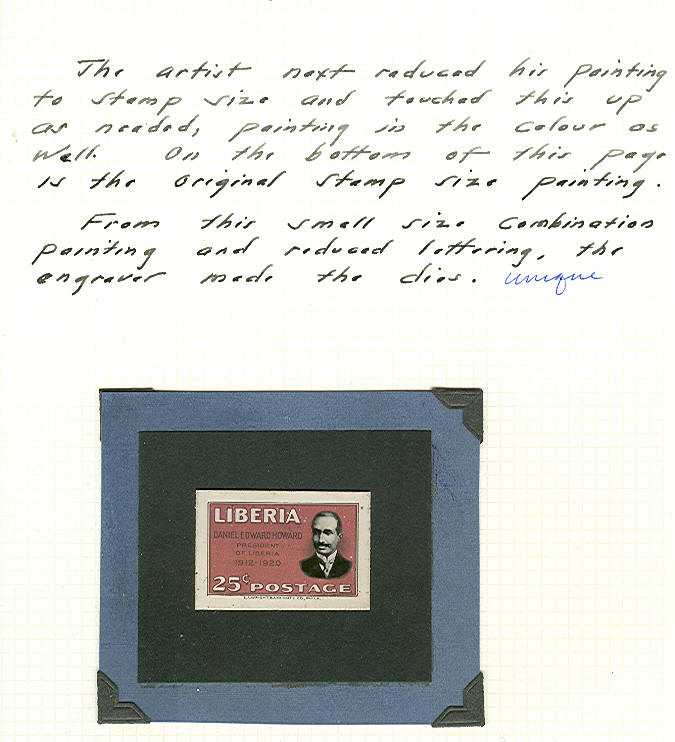 The artist next reduced his painting
to stamp size and touched this up
as needed, painting in the colour as
well. On the bottom of this page
is the original stamp size painting.
From this small size combination
painting and reduced lettering, the
engraver made the dies. unique
LIBERIA
DANIEL EDWARD HOWARD
PRESIDENT
OF LIBERIA
1912-1920
25¢ POSTAGE